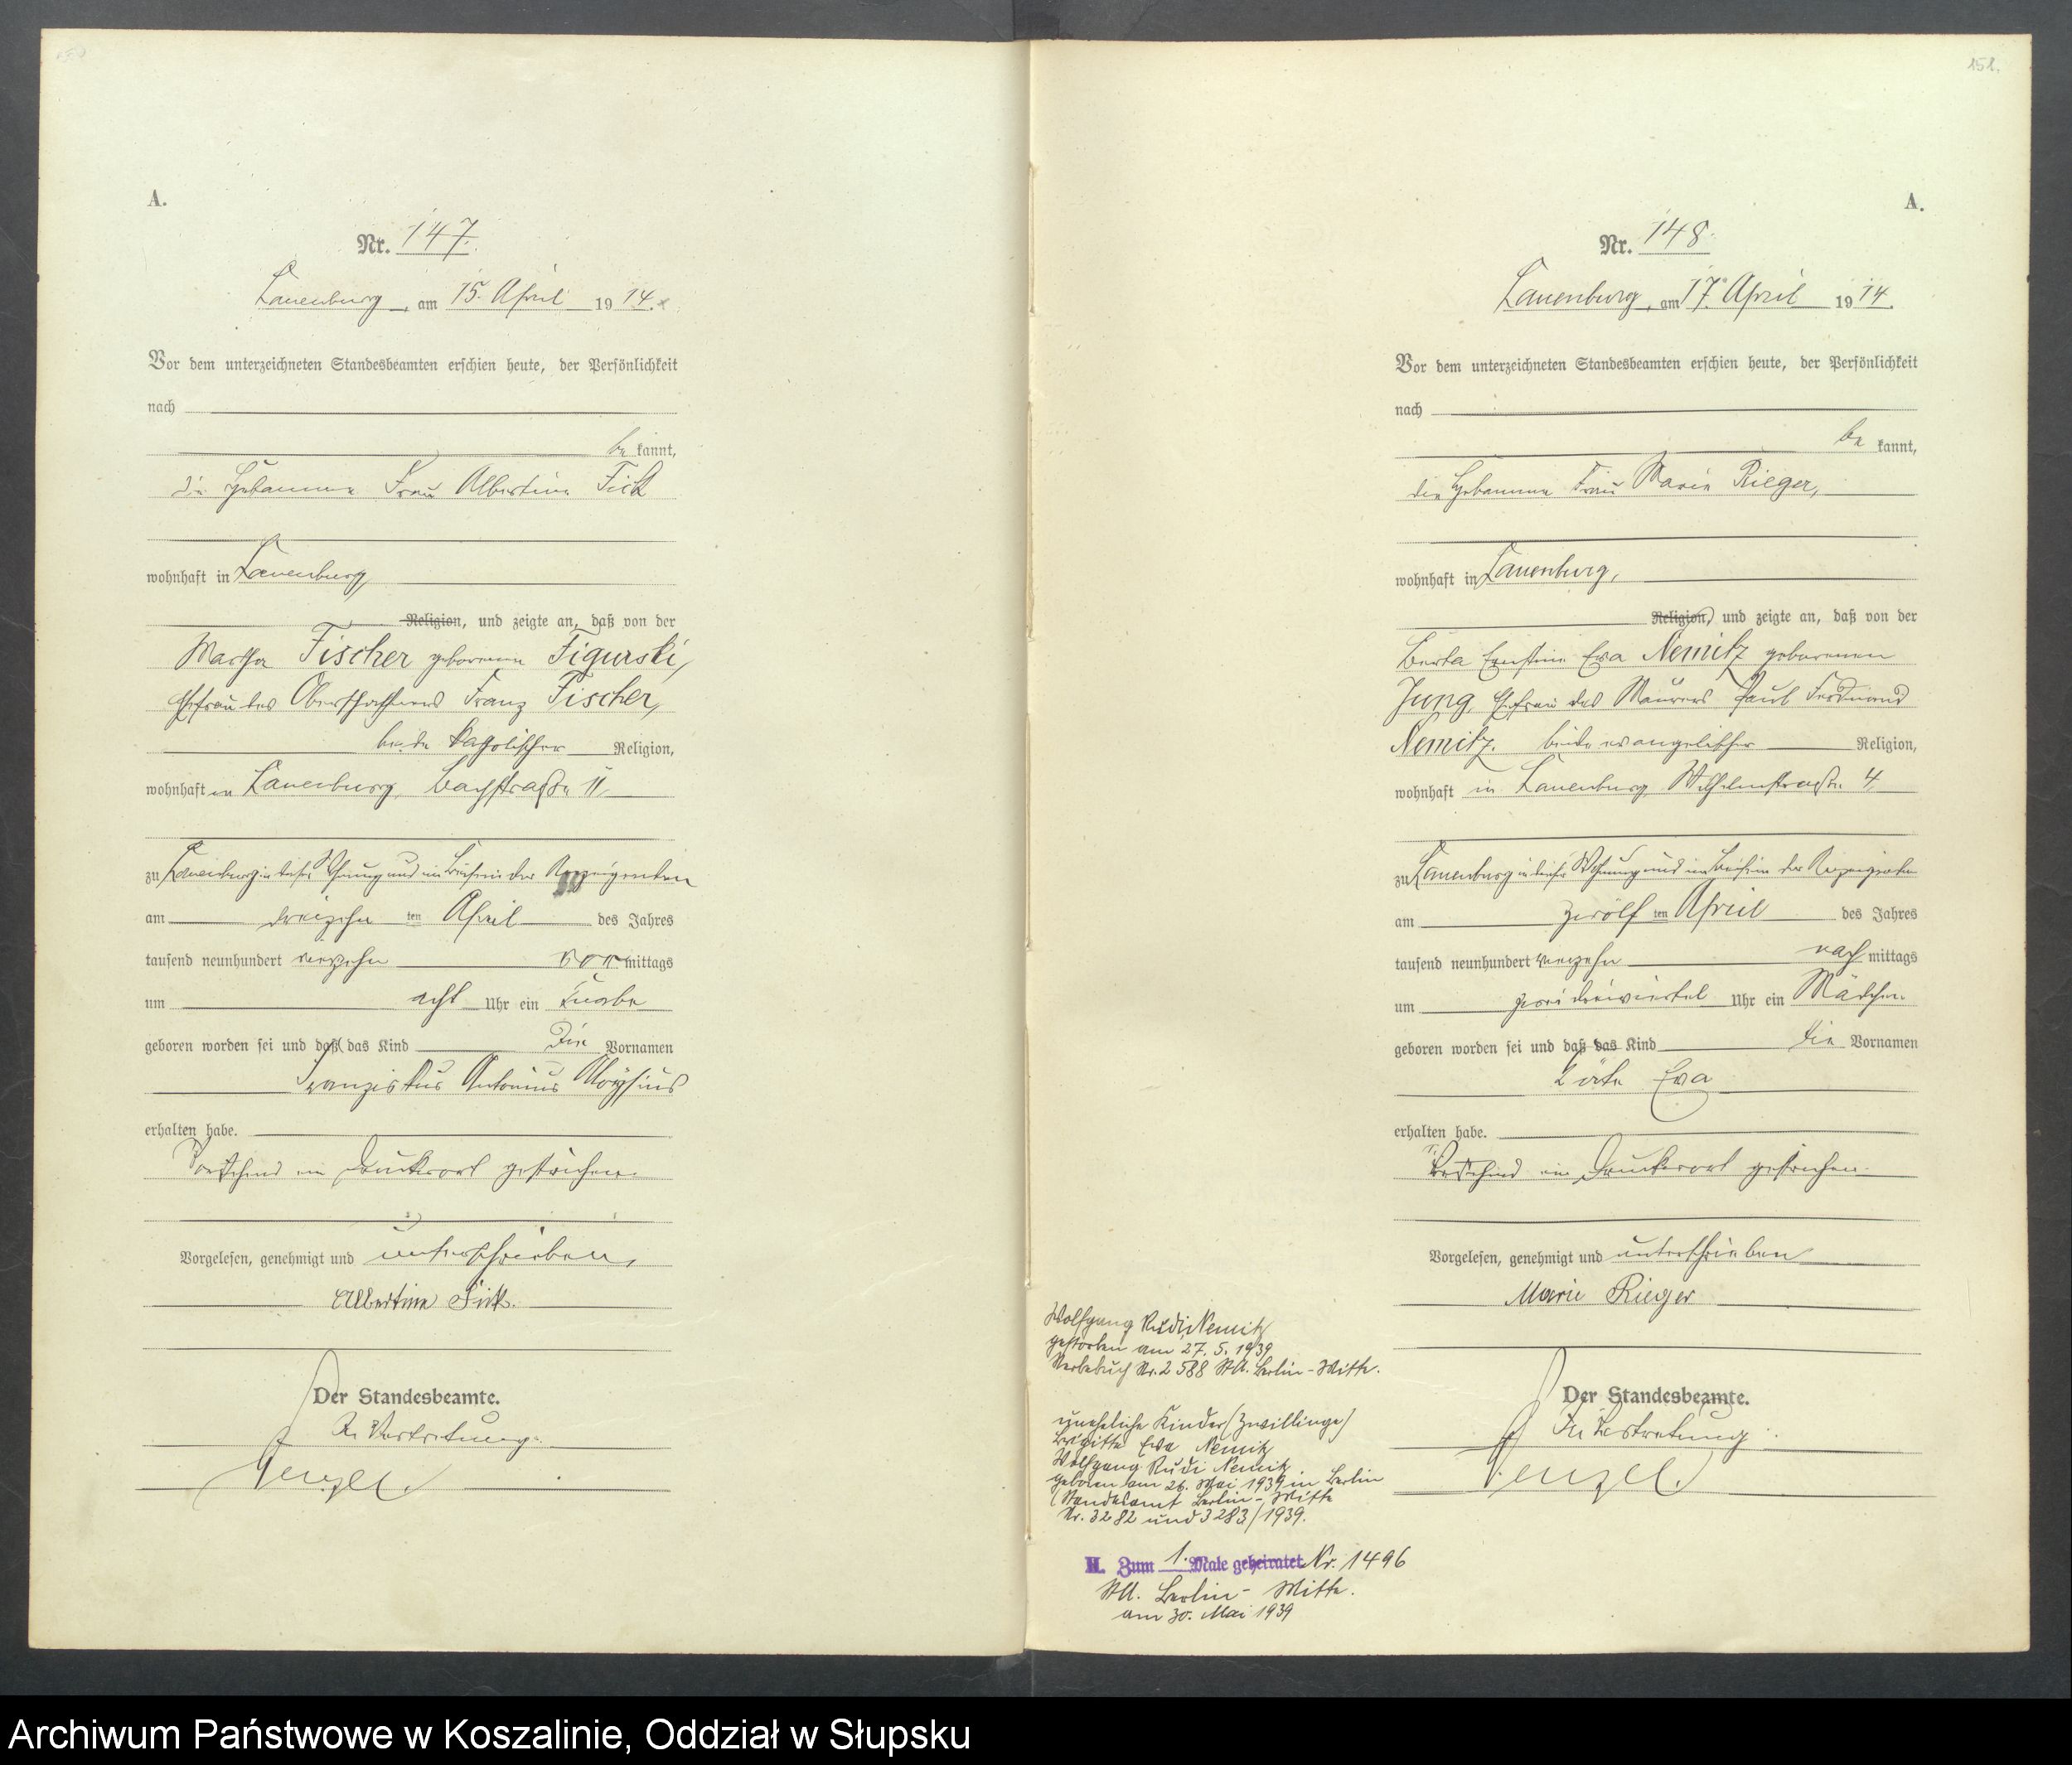 A.
Nr. 147.
Lauenburg, am 15. April 1914.
Vor dem unterzeichneten Standesbeamten erschien heute, der Persönlichkeit
nach
bekannt,
die Hebamme Frau Albertine Fick
wohnhaft in Lauenburg,
Religion, und zeigte an, daß von der
Martha Fischer geborenen Figurski,
Ehefrau des Oberschaffners Franz Fischer,
beide katholischer Religion,
wohnhaft in Lauenburg, Bachstraße 11,
zu Lauenburg in dieser Wohnung und im Beisein der Anzeigenden
am dreizehn ten April des Jahres
tausend neunhundert vierzehn vormittags
um acht Uhr ein Knabe
geboren worden sei und daß das Kind die Vornamen
Franziskus Antonius Aloysius
erhalten habe.
Vorstehend ein Druckwort gestrichen.
Vorgelesen, genehmigt und unterschrieben,
Albertine Fick.
Der Standesbeamte.
In Vertretung.
Wenzel.
151.
A.
Nr. 148.
Lauenburg, am 17. April 1914.
Vor dem unterzeichneten Standesbeamten erschien heute, der Persönlichkeit
nach
bekannt,
die Hebamme Frau Marie Rieger,
wohnhaft in Lauenburg,
Religion, und zeigte an, daß von der
Berta Ernstine Eva Nemitz geborenen
Jung, Ehefrau des Maurers Paul Ferdinand
Nemitz, beide evangelischer Religion,
wohnhaft in Lauenburg, Wilhelmstraße 4,
zu Lauenburg in dieser Wohnung und im Beisein der Anzeigenden
am zwölf ten April des Jahres
tausend neunhundert vierzehn nachmittags
um zwei dreiviertel Uhr ein Mädchen
geboren worden sei und daß das Kind die Vornamen
Eva
erhalten habe.
Vorstehend ein Druckwort gestrichen.
Vorgelesen, genehmigt und unterschrieben
Marie Rieger
Der Standesbeamte.
In Vertretung.
Wenzel.
Wolfgang Rudi Nemitz
gestorben am 27. 5. 1939
Sterbebuch Nr. 2588 StA. Berlin-Mitte.
uneheliche Kinder (Zwillinge)
Brigitte Eva Nemitz
Wolfgang Rudi Nemitz
geboren am 26. Mai 1939 in Berlin
(Standesamt Berlin-Mitte
Nr. 3282 und 3283/1939.
H. Zum 1. Male geheiratet Nr. 1496
StA. Berlin-Mitte.
am 30. Mai 1939
Archiwum Państwowe w Koszalinie, Oddział w Słupsku